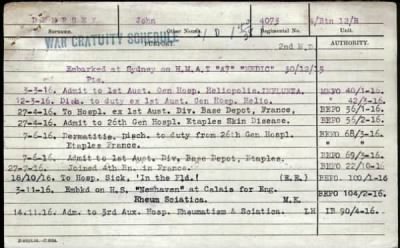 DEMPSEY John 4073 4/Btn 12/R
Surname. Other Names. Regimental No. Unit.
WAR GRATUITY SCHEDULE
REPORT. 2nd M.D. AUTHORITY.
Embarked at Sydney on H.M.A.T "A7" "MEDIC" 30/12/15
Pte.
3-3-16. Admit to 1st Aust. Gen Hosp. Heliopolis. INFLUNZA. BEFO 40/1-16.
12-3-16. Disch. to duty ex 1st Aust. Gen Hosp. Helio. " 42/3-16.
27-4-16. To Hospl. ex 1st Aust. Div. Base Depot, France. BEFO 55/1-16.
27-4-16. Admit to 26th Gen Hospl. Etaples Skin Disease. BEFO 56/2-16.
7-6-16. Dermatitis. Disch. to duty from 26th Gen Hospl. BEFO 68/3-16.
Etaples France. "
7-6-16. Admit to 1st Aust. Div. Base Depot, Etaples. BEFO 69/3-16.
27-7-16. Joined 4th Bn. in France. BEFO 22/10-16.
18/10/16. To Hosp. Sick. 'In the Fld.' (E.R.) BEFO. 100/1-16
3-11-16. Embkd on H.S. "Newhaven" at Calais for Eng. BEFO. 104/2-16.
Rheum Sciatica. M.K.
14.11.16. Adm. to 3rd Aux. Hosp. Rheumatism & Sciatica. LH IR 90/4-16.